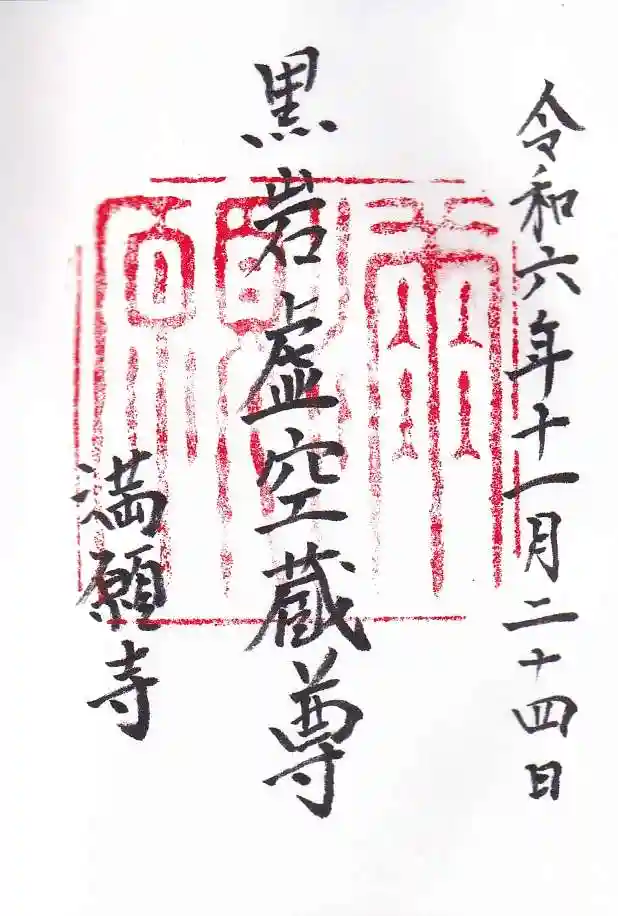 令和六年十一月二十四日
黒岩虚空蔵尊
満願寺